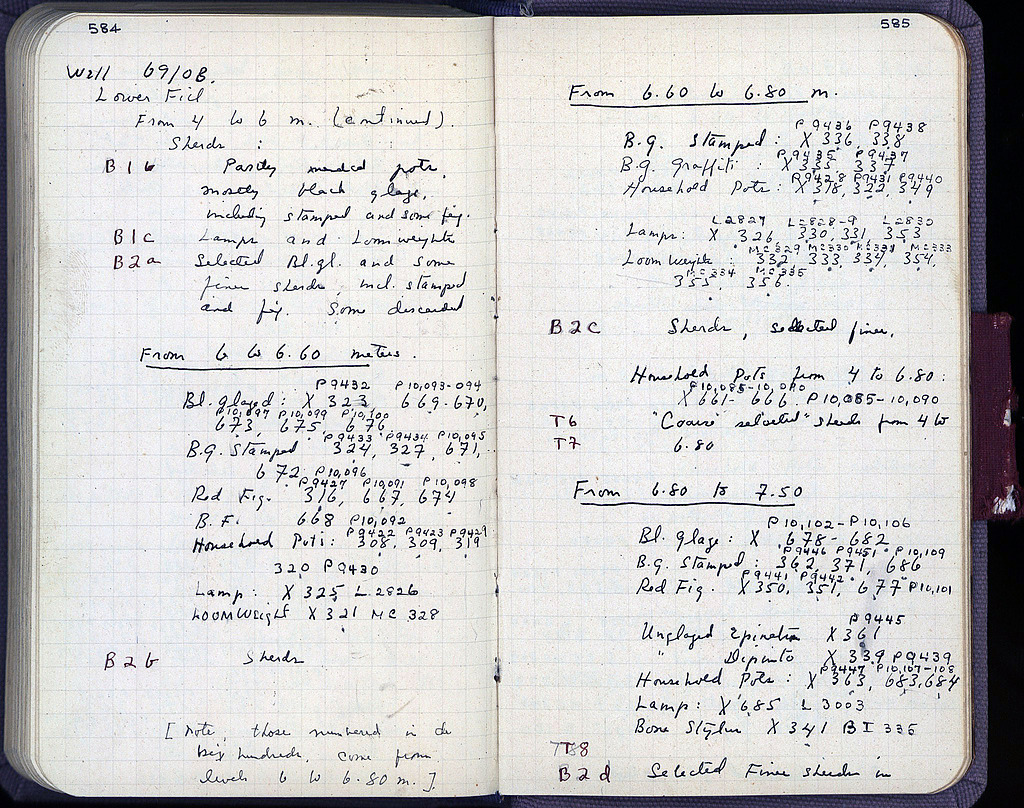 584
Well 69/OB.
Lower Fill
From 4 to 6 m. (continued).
Sherds :
B1b Partly mended pots,
mostly black glaze,
including stamped and some fig.
B1c Lamps and Loomweights
B2a Selected Bl.gl. and some
finer sherds, incl. stamped
and fig. Some discarded
From 6 to 6.60 meters.
P9432 P10,093-094
Bl. glazed : X 323 669-670,
P10,097 P10,099 P10,100
673, 675, 676
P9433 P9434 P10,095
B.G. Stamped 324, 327, 671,
672 P10,096
P9427 P10,091 P10,098
Red Fig. 316, 667, 674
B.F. 668 P10,092
P9422 P9423 P9429
Household Pots: 308, 309, 319
320 P9430
Lamp: X 325 L2826
LOOMWeight X 321 MC 328
B2b Sherds
[Note, those numbered in the
big hundreds, come from
levels 6 to 6.80 m.]
585
From 6.60 to 6.80 m.
P9436 P9438
B.G. Stamped : X 336 338
P9435 P9437
B.G. Graffiti : X 335 337
P9428 P9431 P9440
Household Pots: X 318, 322, 349
L2827 L2828-9 L2830
Lamps: X 326 330, 331 353
MC329 MC330 MC331 MC333
Loom Weights : 332 333, 334, 354,
MC334 MC335
355, 356.
B2C Sherds, selected finer.
Household Pots from 4 to 6.80 :
P10,085-10,090
X 661- 666 P10,085-10,090
T6 "Coarse" selected" sherds from 4 to
T7 6.80
From 6.80 to 7.50
P10,102-P10,106
Bl. glaze: X 678-682
P9446 P9451 P10,109
B.G. Stamped: 362, 371, 686
P9441 P9442
Red Fig. X 350, 351, 677 P10,101
P9445
Unglazed Epinetron X 361
" Dipinto X 339 P9439
P9447 P10,107-108
Household Pots : X 363, 683,684
Lamp: X 685 L 3003
Bone Stylus X 341 BI 335
T8
B2d Selected Finer sherds in